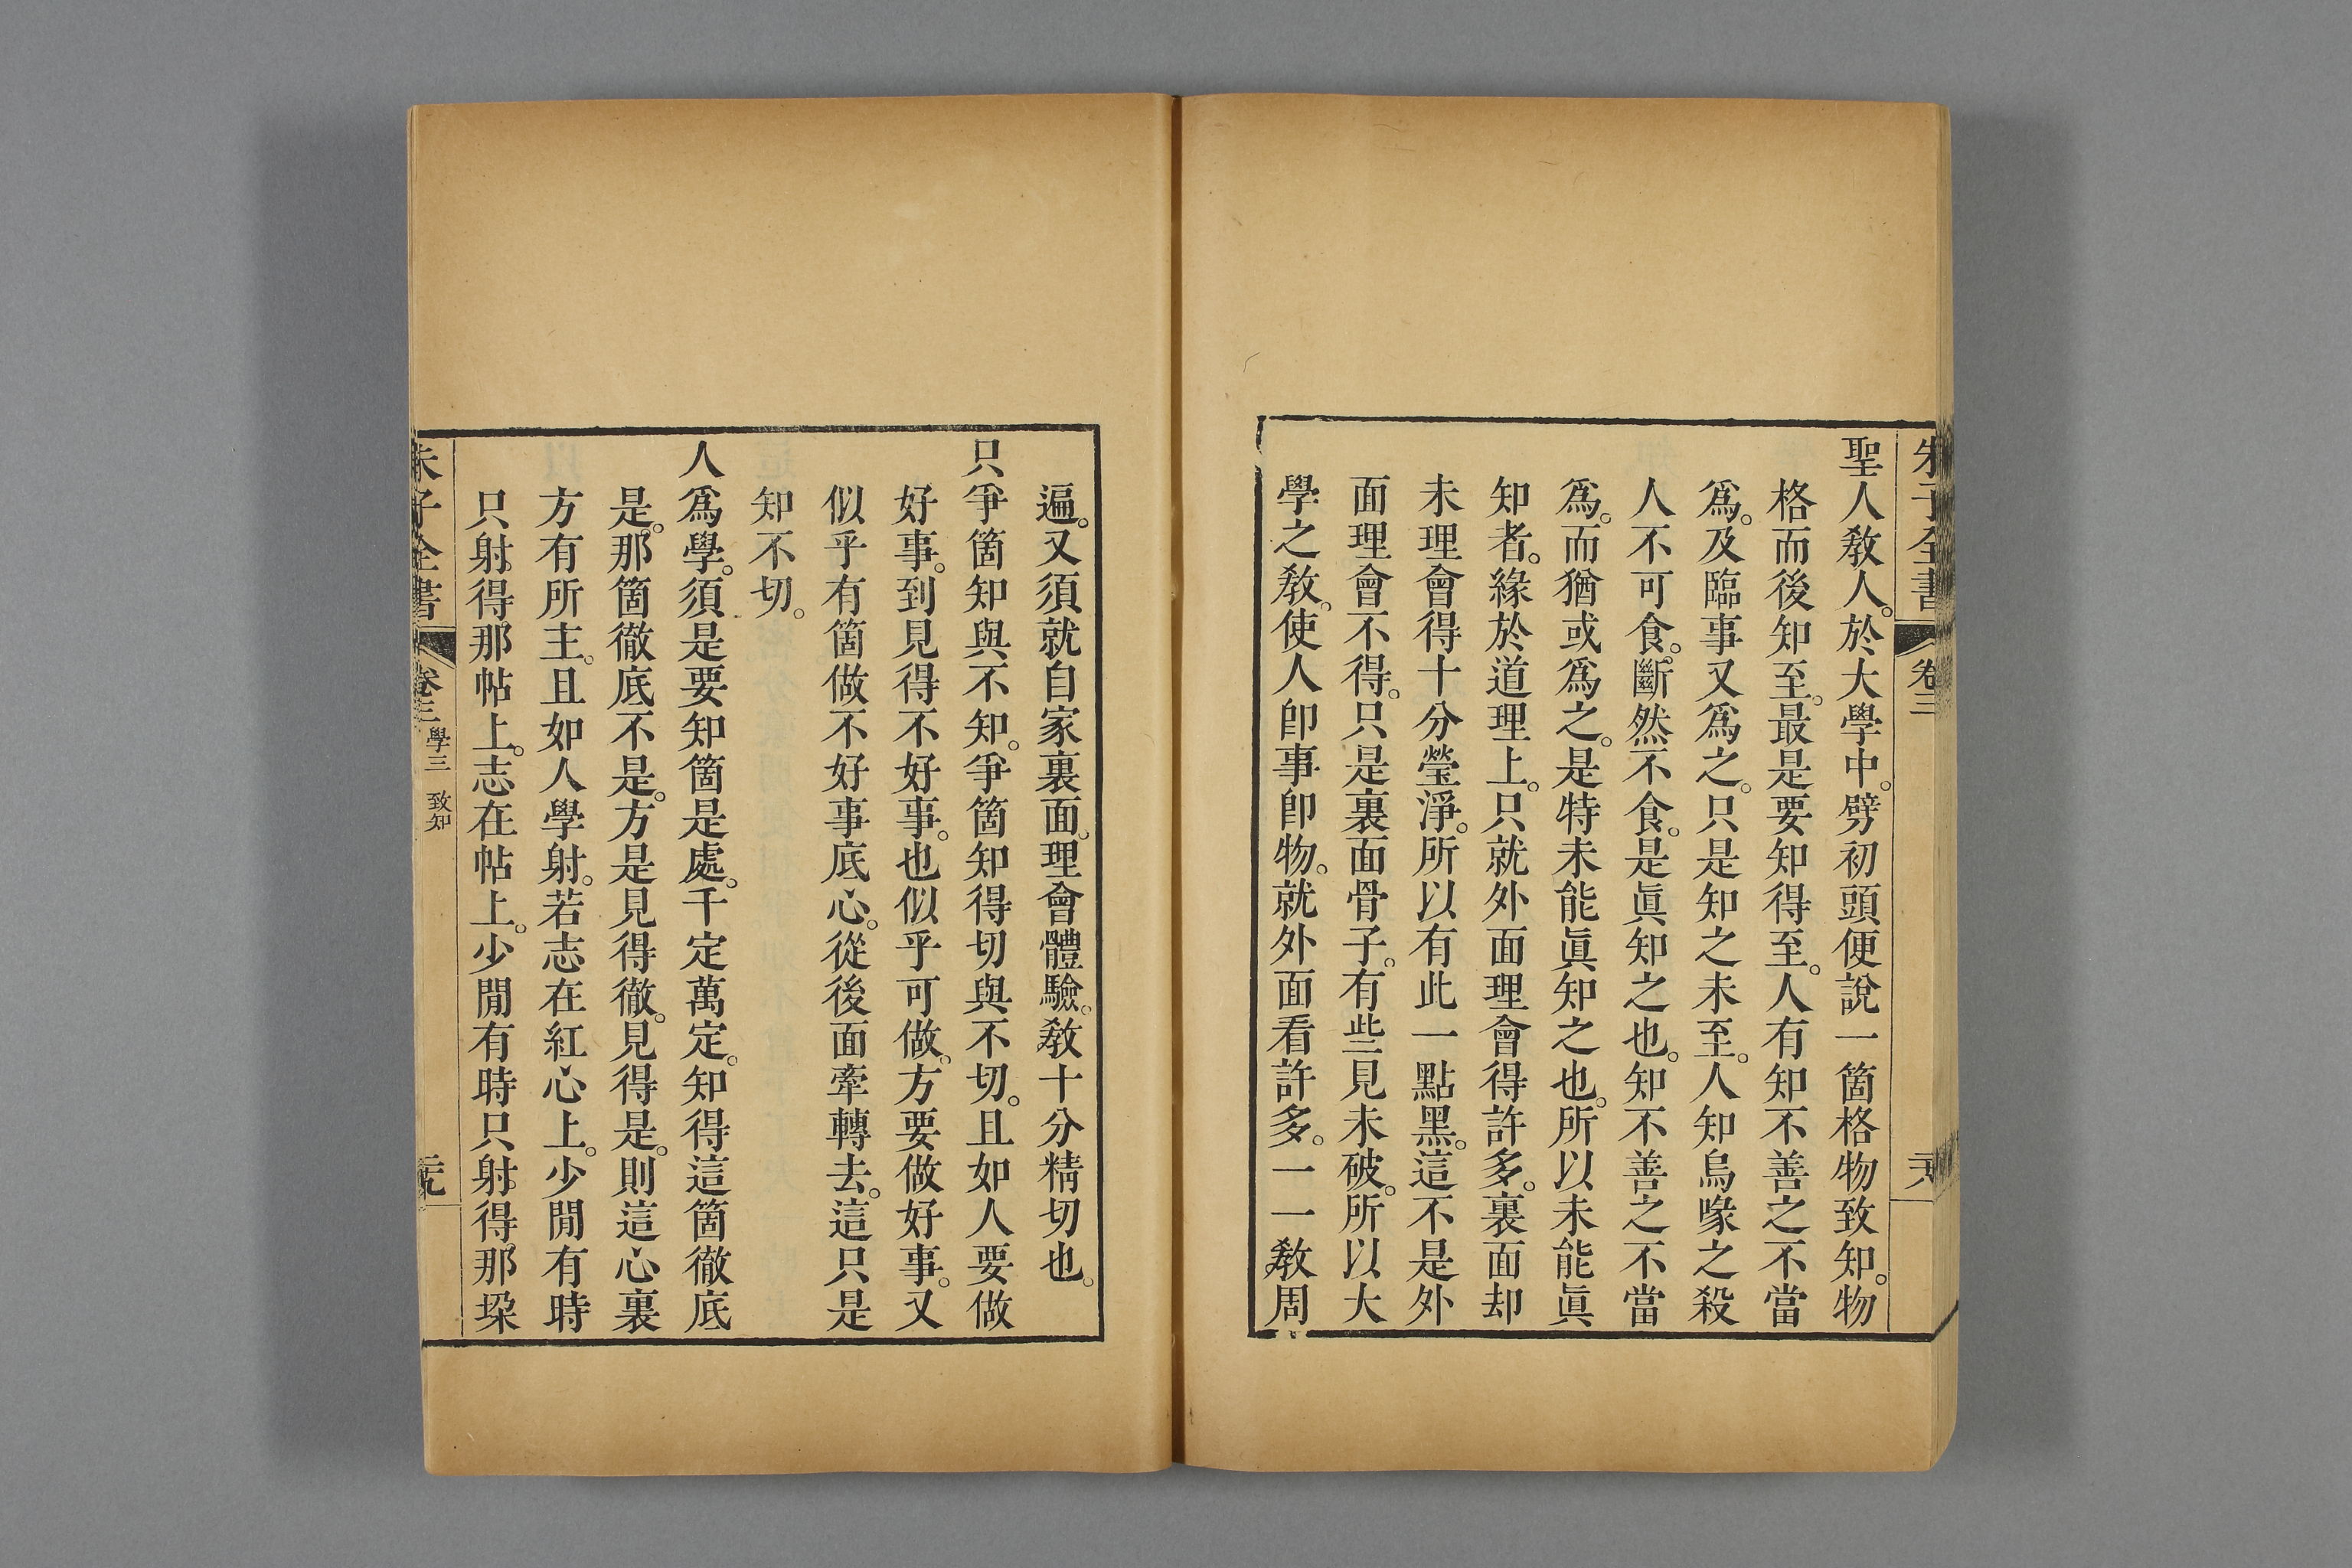 朱子全書 卷三 二十八
聖人敎人。於大學中。劈初頭便說一箇格物致知。物
格而後知至。最是要知得至。人有知不善之不當
爲。及臨事又爲之。只是知之未至。人知烏喙之殺
人不可食。斷然不食。是眞知之也。知不善之不當
爲。而猶或爲之。是特未能眞知之也。所以未能眞
知者。緣於道理上。只就外面理會得許多。裏面却
未理會得十分瑩淨。所以有此一點黑。這不是外
面理會不得。只是裏面骨子。有些見未破。所以大
學之敎。使人卽事卽物。就外面看許多。一一敎周
遍。又須就自家裏面。理會體驗。敎十分精切也。
只爭箇知與不知。爭箇知得切與不切。且如人要做
好事。到見得不好事。也似乎可做。方要做好事。又
似乎有箇做不好事底心。從後面牽轉去。這只是
知不切。
人爲學。須是要知箇是處。千定萬定。知得這箇徹底
是。那箇徹底不是。方是見得徹。見得是。則這心裏
方有所主。且如人學射。若志在紅心上。少閒有時
只射得那帖上。志在帖上。少閒有時只射得那垜
朱子全書 卷三 學三 致知 二十九